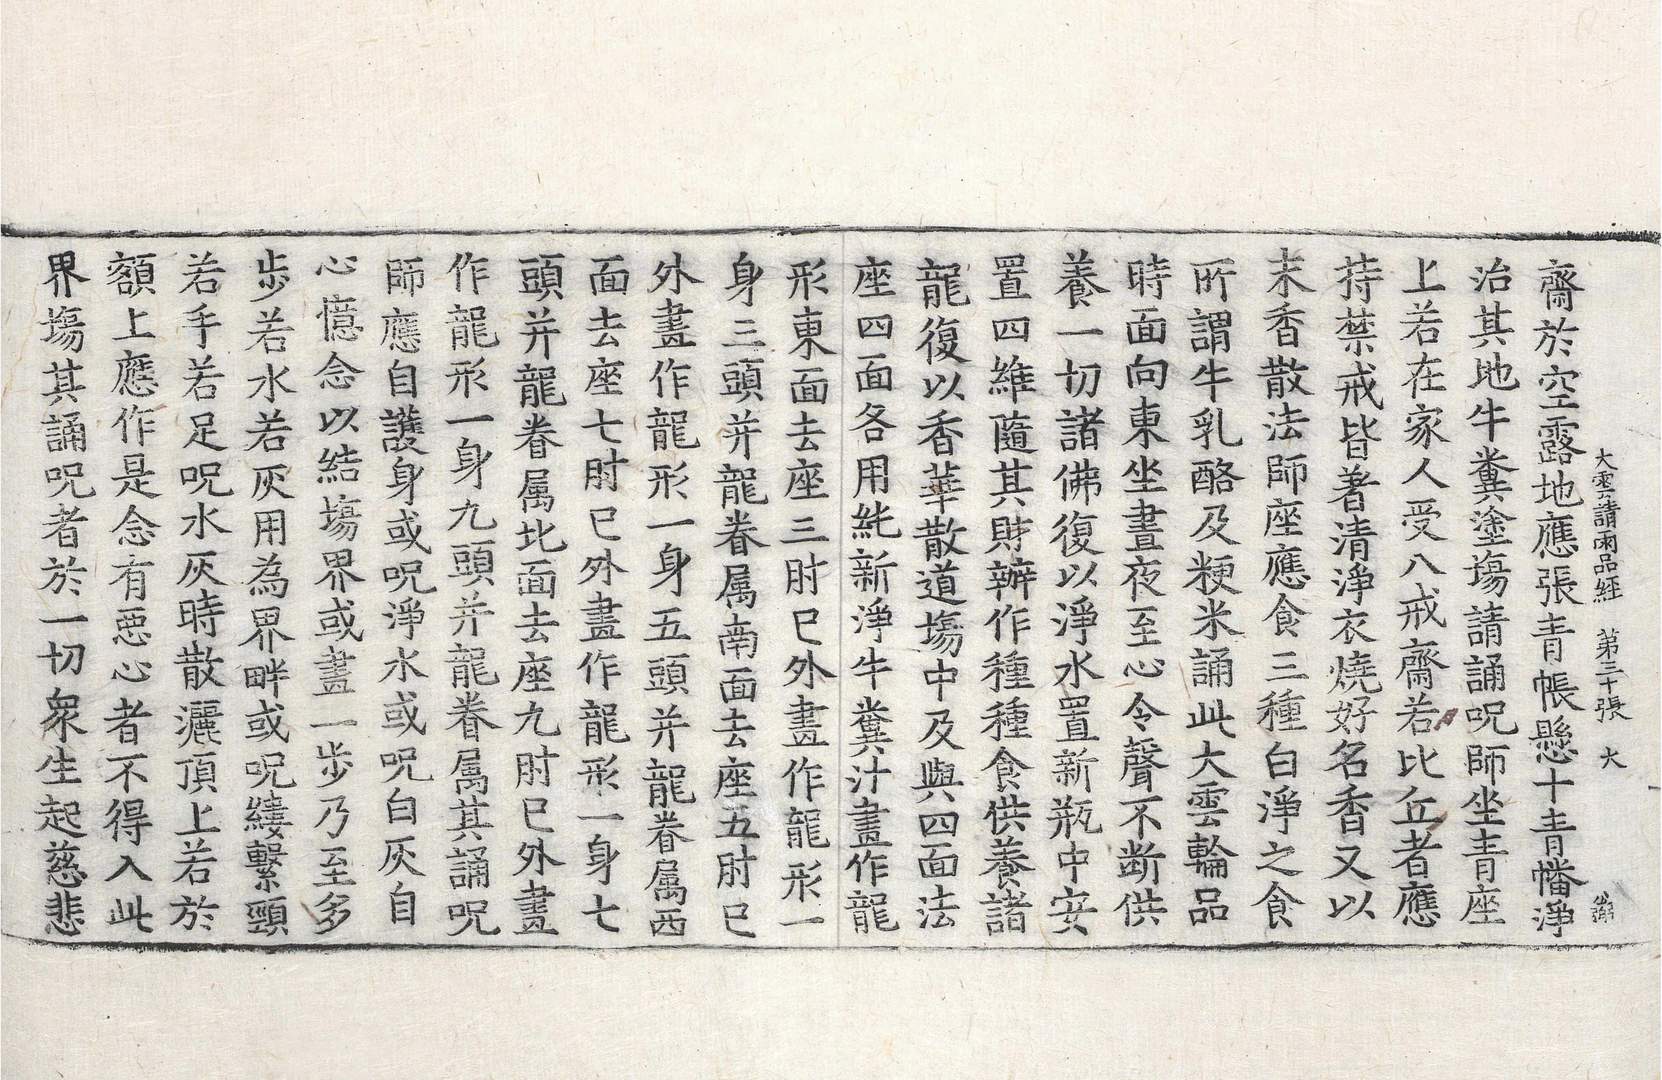 大雲請雨品經 第三十張 大
齋於空露地應張青帳懸十青幡淨
治其地牛糞塗場請誦呪師坐青座
上若在家人受八戒齋若比丘者應
持禁戒皆著清淨衣燒好名香又以
末香散法師座應食三種白淨之食
所謂牛乳酪及粳米誦此大雲輪品
時面向東坐晝夜至心令聲不断供
養一切諸佛復以淨水置新瓶中安
置四維隨其財辦作種種食供養諸
龍復以香華散道塲中及與四面法
座四面各用純新淨牛糞汁畫作龍
形東面去座三肘已外畫作龍形一
身三頭并龍眷属南面去座五肘已
外畫作龍形一身五頭并龍眷属西
面去座七肘已外畫作龍形一身七
頭并龍眷属北面去座九肘已外畫
作龍形一身九頭并龍眷属其誦呪
師應自護身或呪淨水或呪白灰自
心憶念以結塲界或畫一步乃至多
步若水若灰用為界畔或呪縷繫頸
若手若足呪水灰時散灑頂上若於
額上應作是念有惡心者不得入此
界塲其誦呪者於一切衆生起慈悲